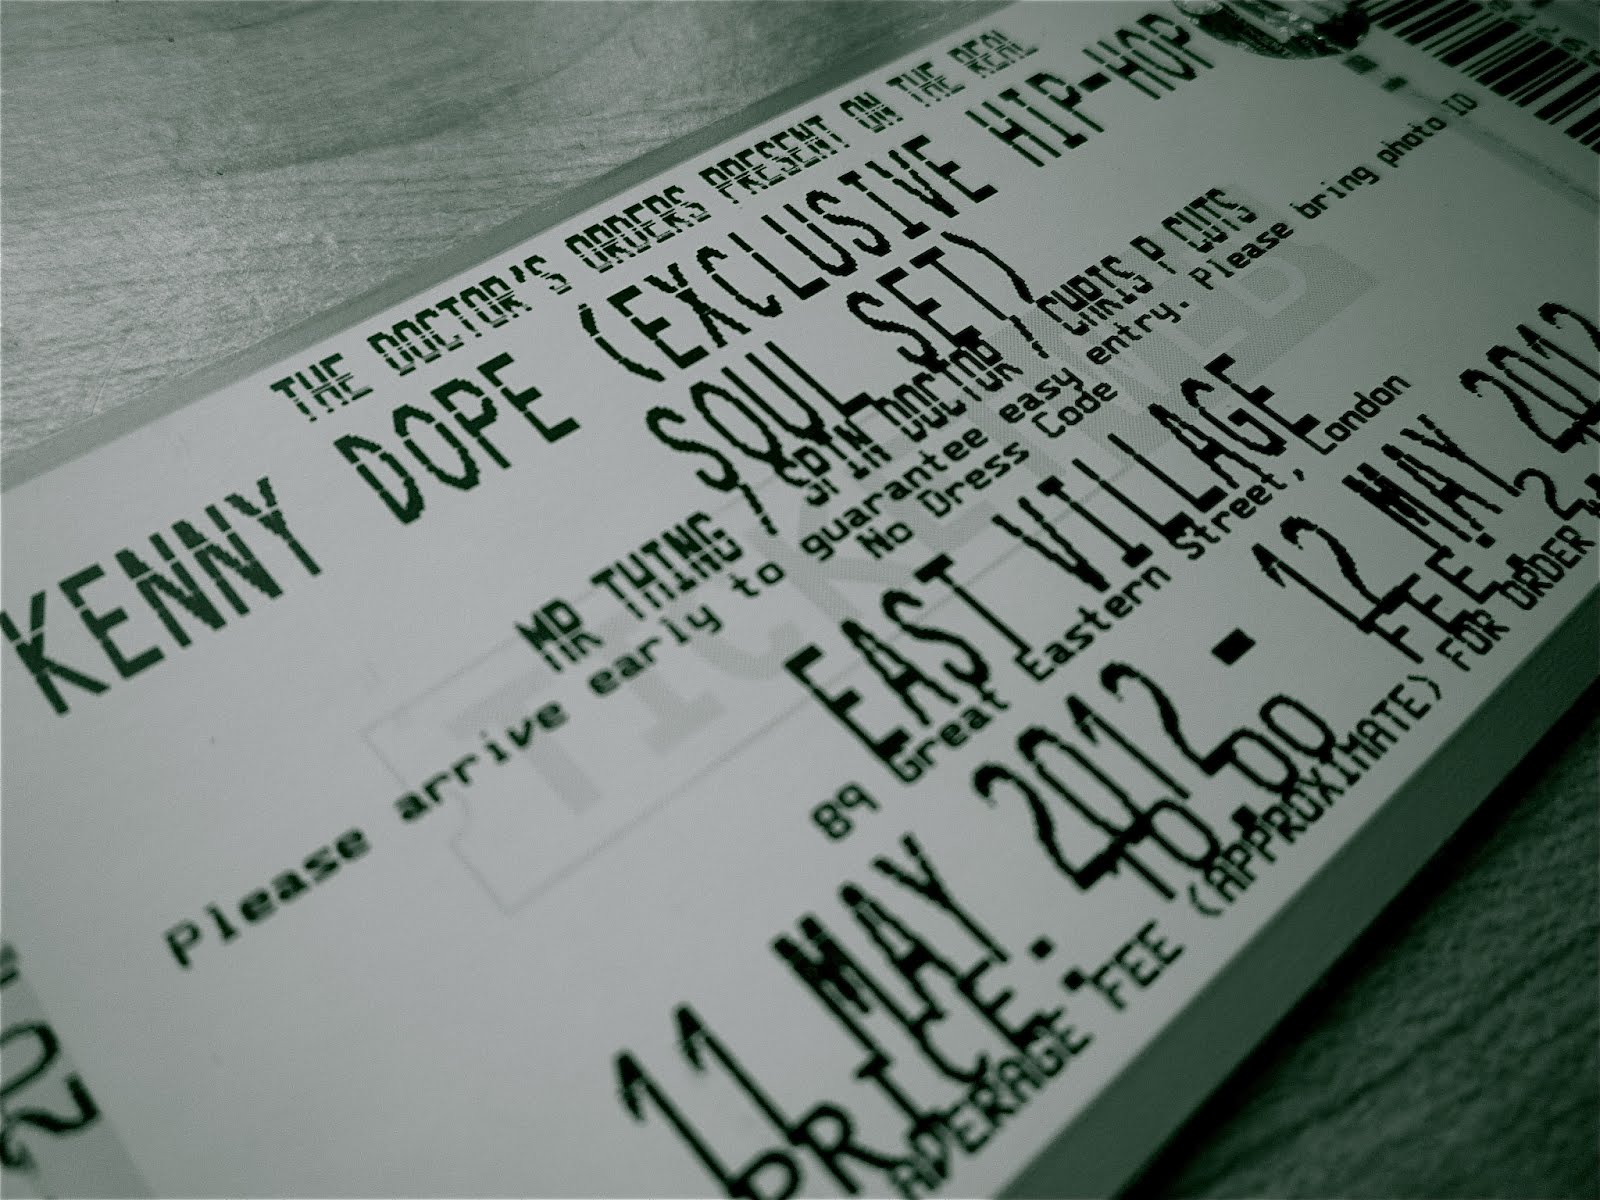 THE DOCTOR'S ORDERS PRESENT ON THE REAL
KENNY DOPE (EXCLUSIVE HIP-HOP
SOUL SET)
MR THING / SPIN DOCTOR / CHRIS P CUTS
Please arrive early to guarantee easy entry. Please bring photo ID
No Dress Code
EAST VILLAGE
89 Great Eastern Street, London
11 MAY 2012 - 12 MAY 2012
PRICE: 10.00 FEE: 2.
AVERAGE FEE (APPROXIMATE) FOR ORDER
TICKETWEB